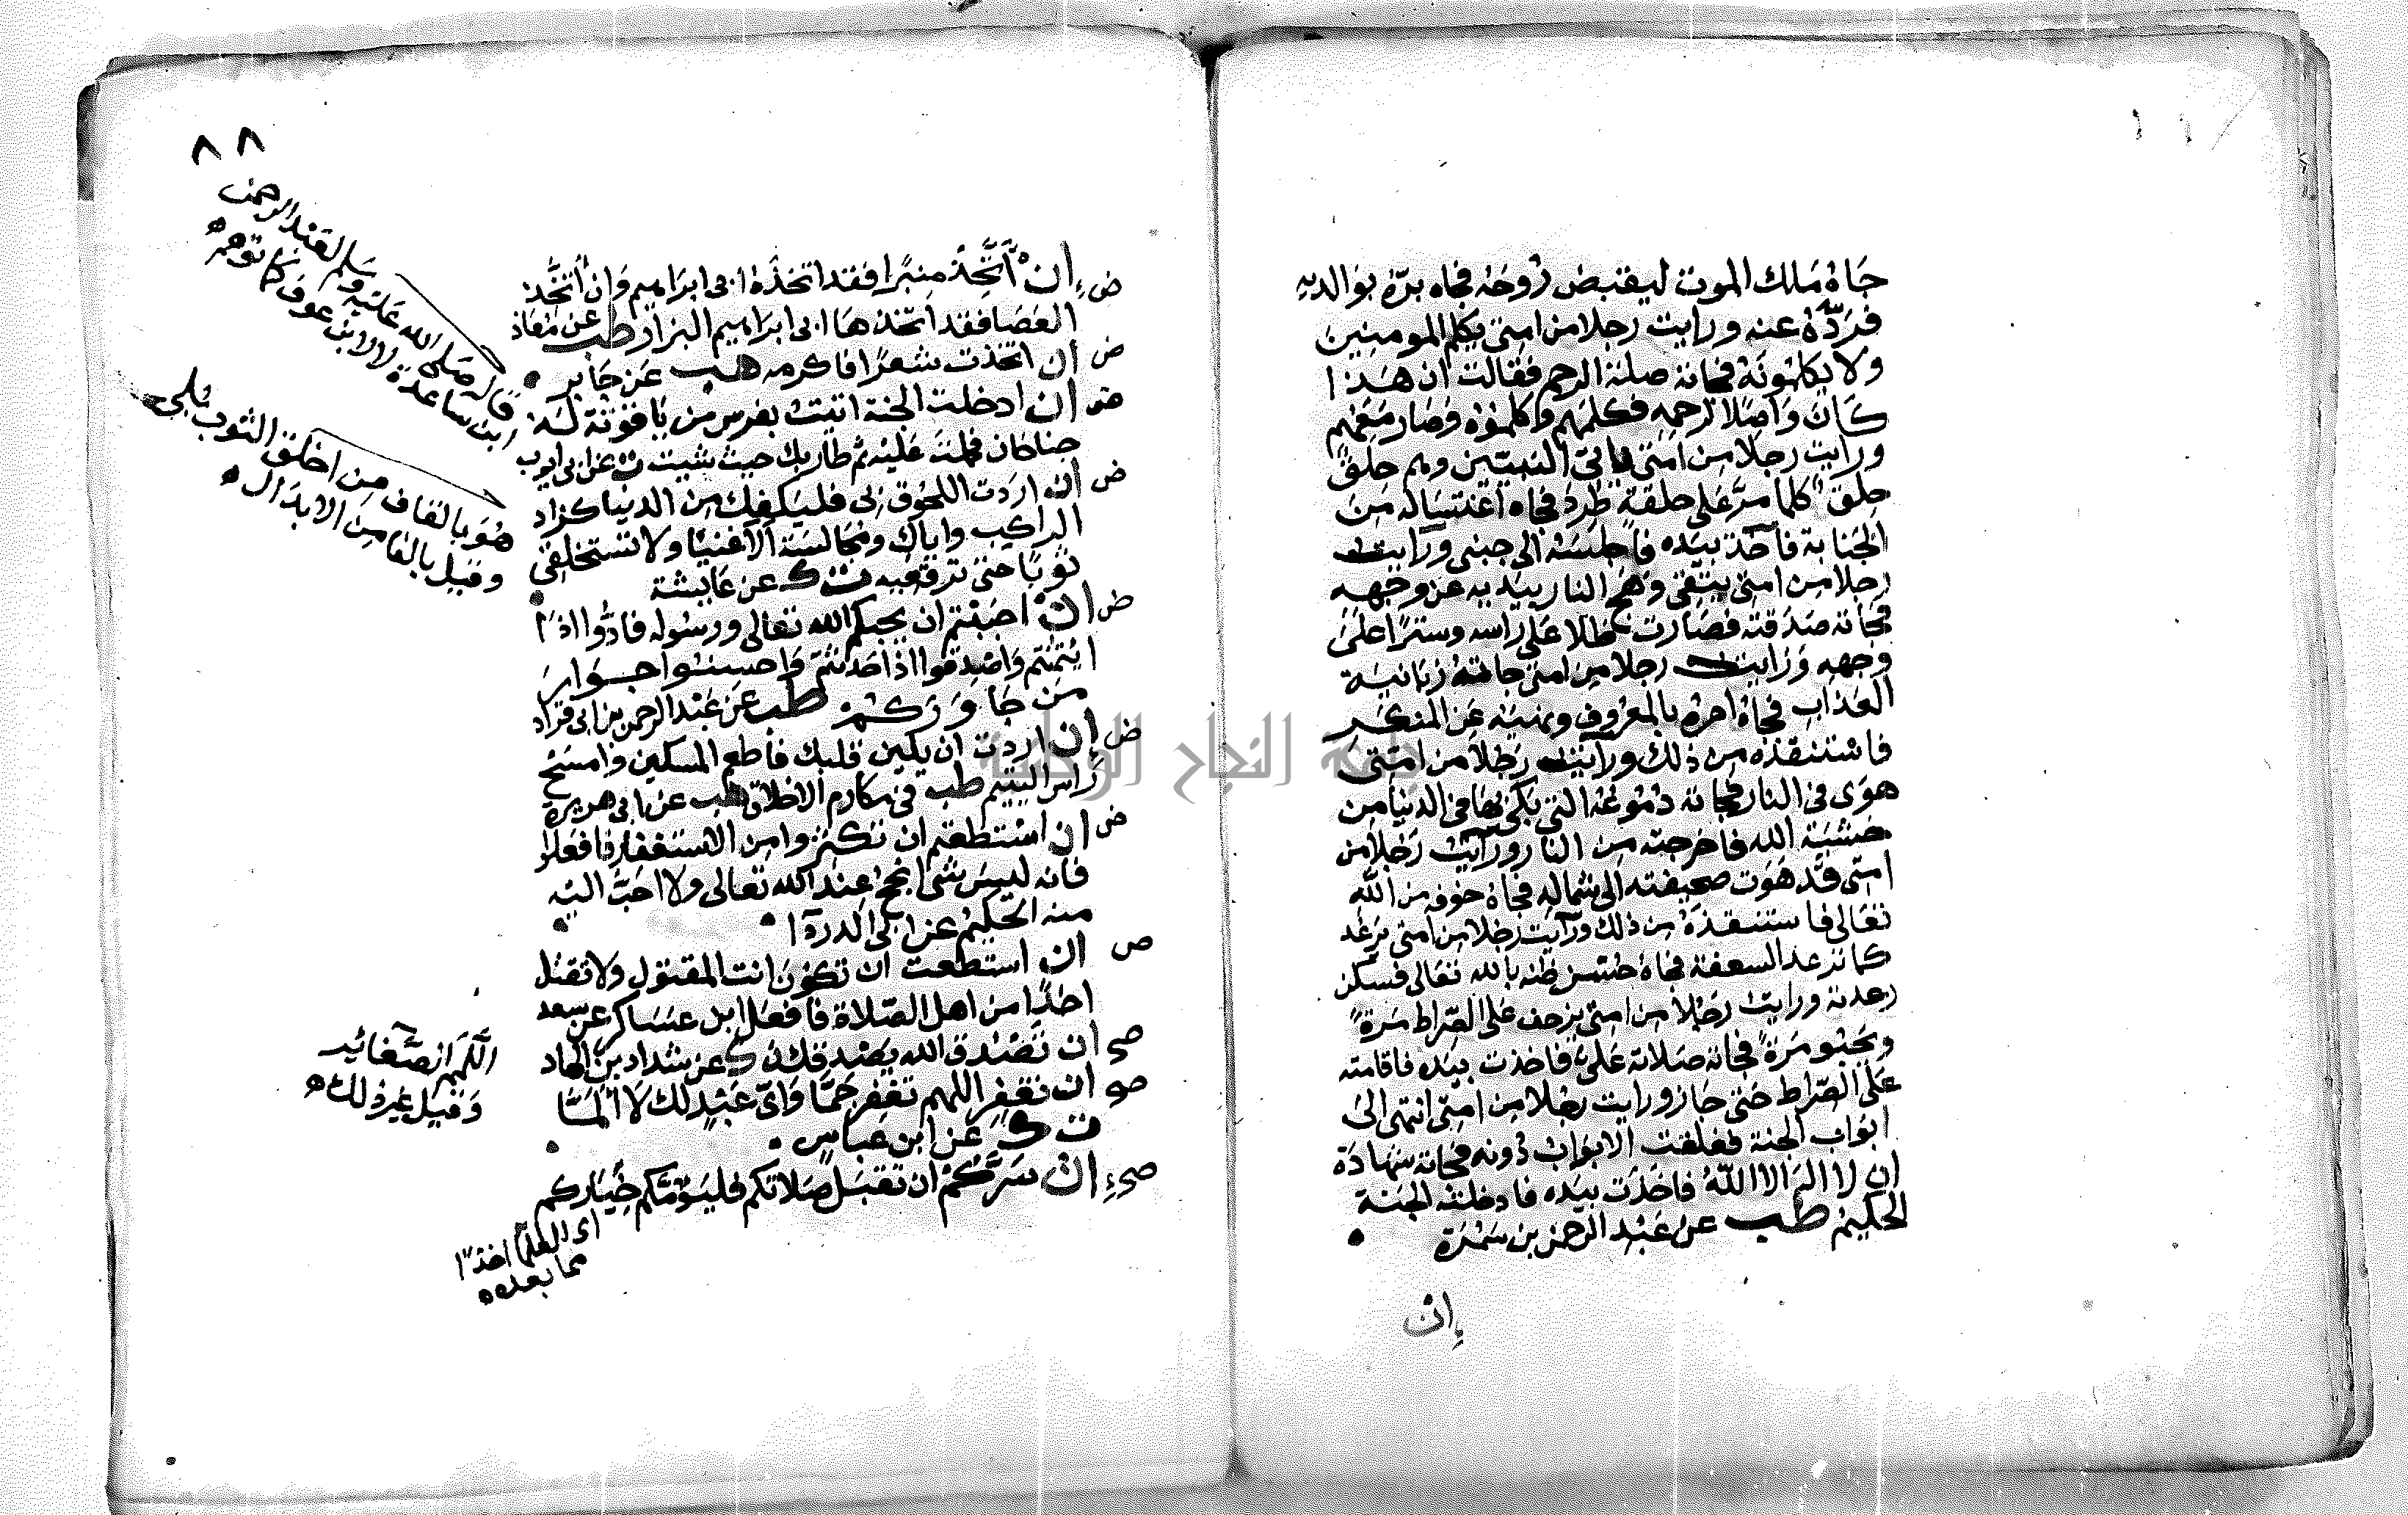 جاه ملك الموت ليقبض روحه فجاه بره بوالديه
فرده عنه ورايت رجلا من امتى يكلم المومنين
ولا يكلمونه فجاته صلة الرحم فقالت ان هذا
كان واصلا لرحمه فكلمهم وكلموه وصار معهم
ورايت رجلا من امتى ياتى النبيين وهم حلق
حلق كلما مر على حلقة طرد فجاه اغتساله من
الجنابة فاخذ بيده فاجلسه الى جنبى ورايت
رجلا من امتى يتقى وهج النار بيديه عن وجهه
فجاته صدقته فصارت ظلا على راسه وسترا على
وجهه ورايت رجلا من امتى جاته زبانية
العذاب فجاه امره بالمعروف ونهيه عن المنكر
فاستنقذه من ذلك ورايت رجلا من امتى
هوى فى النار فجاته دموعه التى بكى بها فى الدنيا من
خشية الله فاخرجته من النار ورايت رجلا من
امتى قد هوت صحيفته الى شماله فجاه خوفه من الله
تعالى فاستنقذه من ذلك ورايت رجلا من امتى يرعد
كما ترعد السعفة فجاه حسن ظنه بالله تعالى فسكن
رعدته ورايت رجلا من امتى يزحف على الصراط مرة
ويحبو مرة فجاته صلاته على فاخذت بيده فاقامته
على الصراط حتى جاز ورايت رجلا من امتى انتهى الى
ابواب الجنة فغلقت الابواب دونه فجاته شهادة
ان لا اله الا الله فاخذت بيده فادخلته الجنة
الحكيم طب عن عبد الرحمن بن سمرة
إن
٨٨
ض إن أتخذ منبرا فقد اتخذه ابى ابراهيم وان أتخذ
العصا فقد اتخذها ابى ابراهيم البزار طب عن معاذ
ض ان اتخذت شعرا فاكرمه هب عن جابر
ض ان ادخلت الجنة اتيت بفرس من ياقوتة له
جناحان فحملت عليه ثم طار بك حيث شيت ت عن ابى ايوب
ض ان اردت اللحوق بى فليكفك من الدنيا كزاد
الراكب واياك ومجالسة الاغنيا ولا تستخلقى
ثوبا حتى ترقعيه ت ك عن عايشة
ض ان احببتم ان يحبكم الله تعالى ورسوله فادوا اذا
ايتمنتم واصدقوا اذا حدثتم واحسنوا جوار
من جاوركم طب عن عبد الرحمن بن ابى قراد
ض إن اردت ان يلين قلبك فاطعم المسكين وامسح
راس اليتيم طب فى مكارم الاخلاق هب عن ابى هريرة
ض ان استطعتم ان تكثروا من الاستغفار فافعلوا
فانه ليس شى انجح عند الله تعالى ولا احب اليه
منه الحكيم عن ابى الدردا
ص ان استطعت ان تكون انت المقتول ولا تقتل
احدا من اهل الصلاة فافعل ابن عساكر عن سعد
صح ان تصدق الله يصدقك ن ك عن شداد بن الهاد
صح ان تغفر اللهم تغفر جما واى عبد لك لا ألما
ت ك عن ابن عباس
صح إن سركم ان تقبل صلاتكم فليؤمكم خياركم
قاله صلى الله عليه وسلم لعبد الرحمن
ابن ساعدة لا لابن عوف كما توهم
هو بالقاف من اخلق الثوب بلى
وقيل بالفا من الابدال
اللمم الصغاير
وقيل غير ذلك
اى العلما اخذا
مما بعده
جامعة النجاح الوطنية